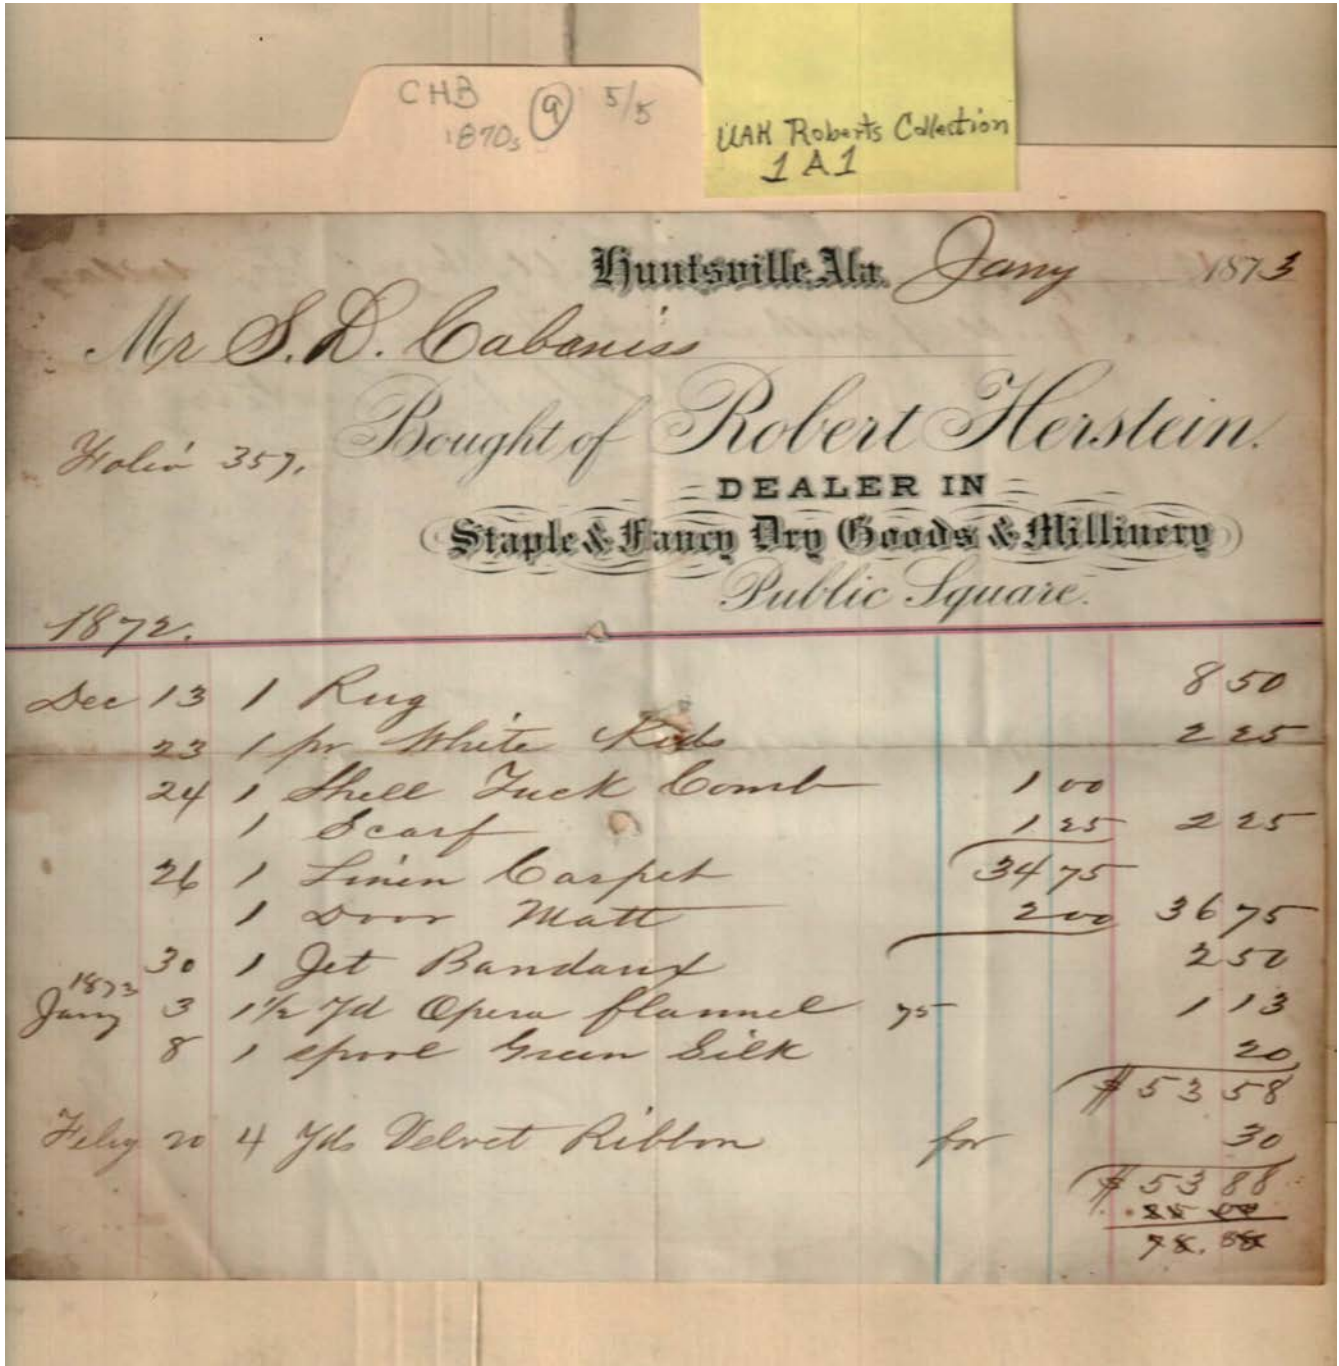 CHB 9 5/5
1870s
UAH Roberts Collection
1 A 1
Huntsville, Ala. Jany 1873
Mr S. D. Cabaniss
Bought of Robert Herstein.
Folio 357.
DEALER IN
Staple & Fancy Dry Goods & Millinery
Public Square.
1872.
Dec 13 1 Rug 8 50
23 1 pr White Kids 2 25
24 1 Shell Tuck Comb 1 00
1 Scarf 1 25 2 25
26 1 Linen Carpet 34 75
1 Door Matt 2 00 36 75
30 1 Jet Bandaux 2 50
1873
Jany 3 1 1/2 Yd Opera flannel 75 1 13
8 1 spool Green Silk 20
$ 53 58
Feby 20 4 Yds Velvet Ribbon for 30
$ 53 88